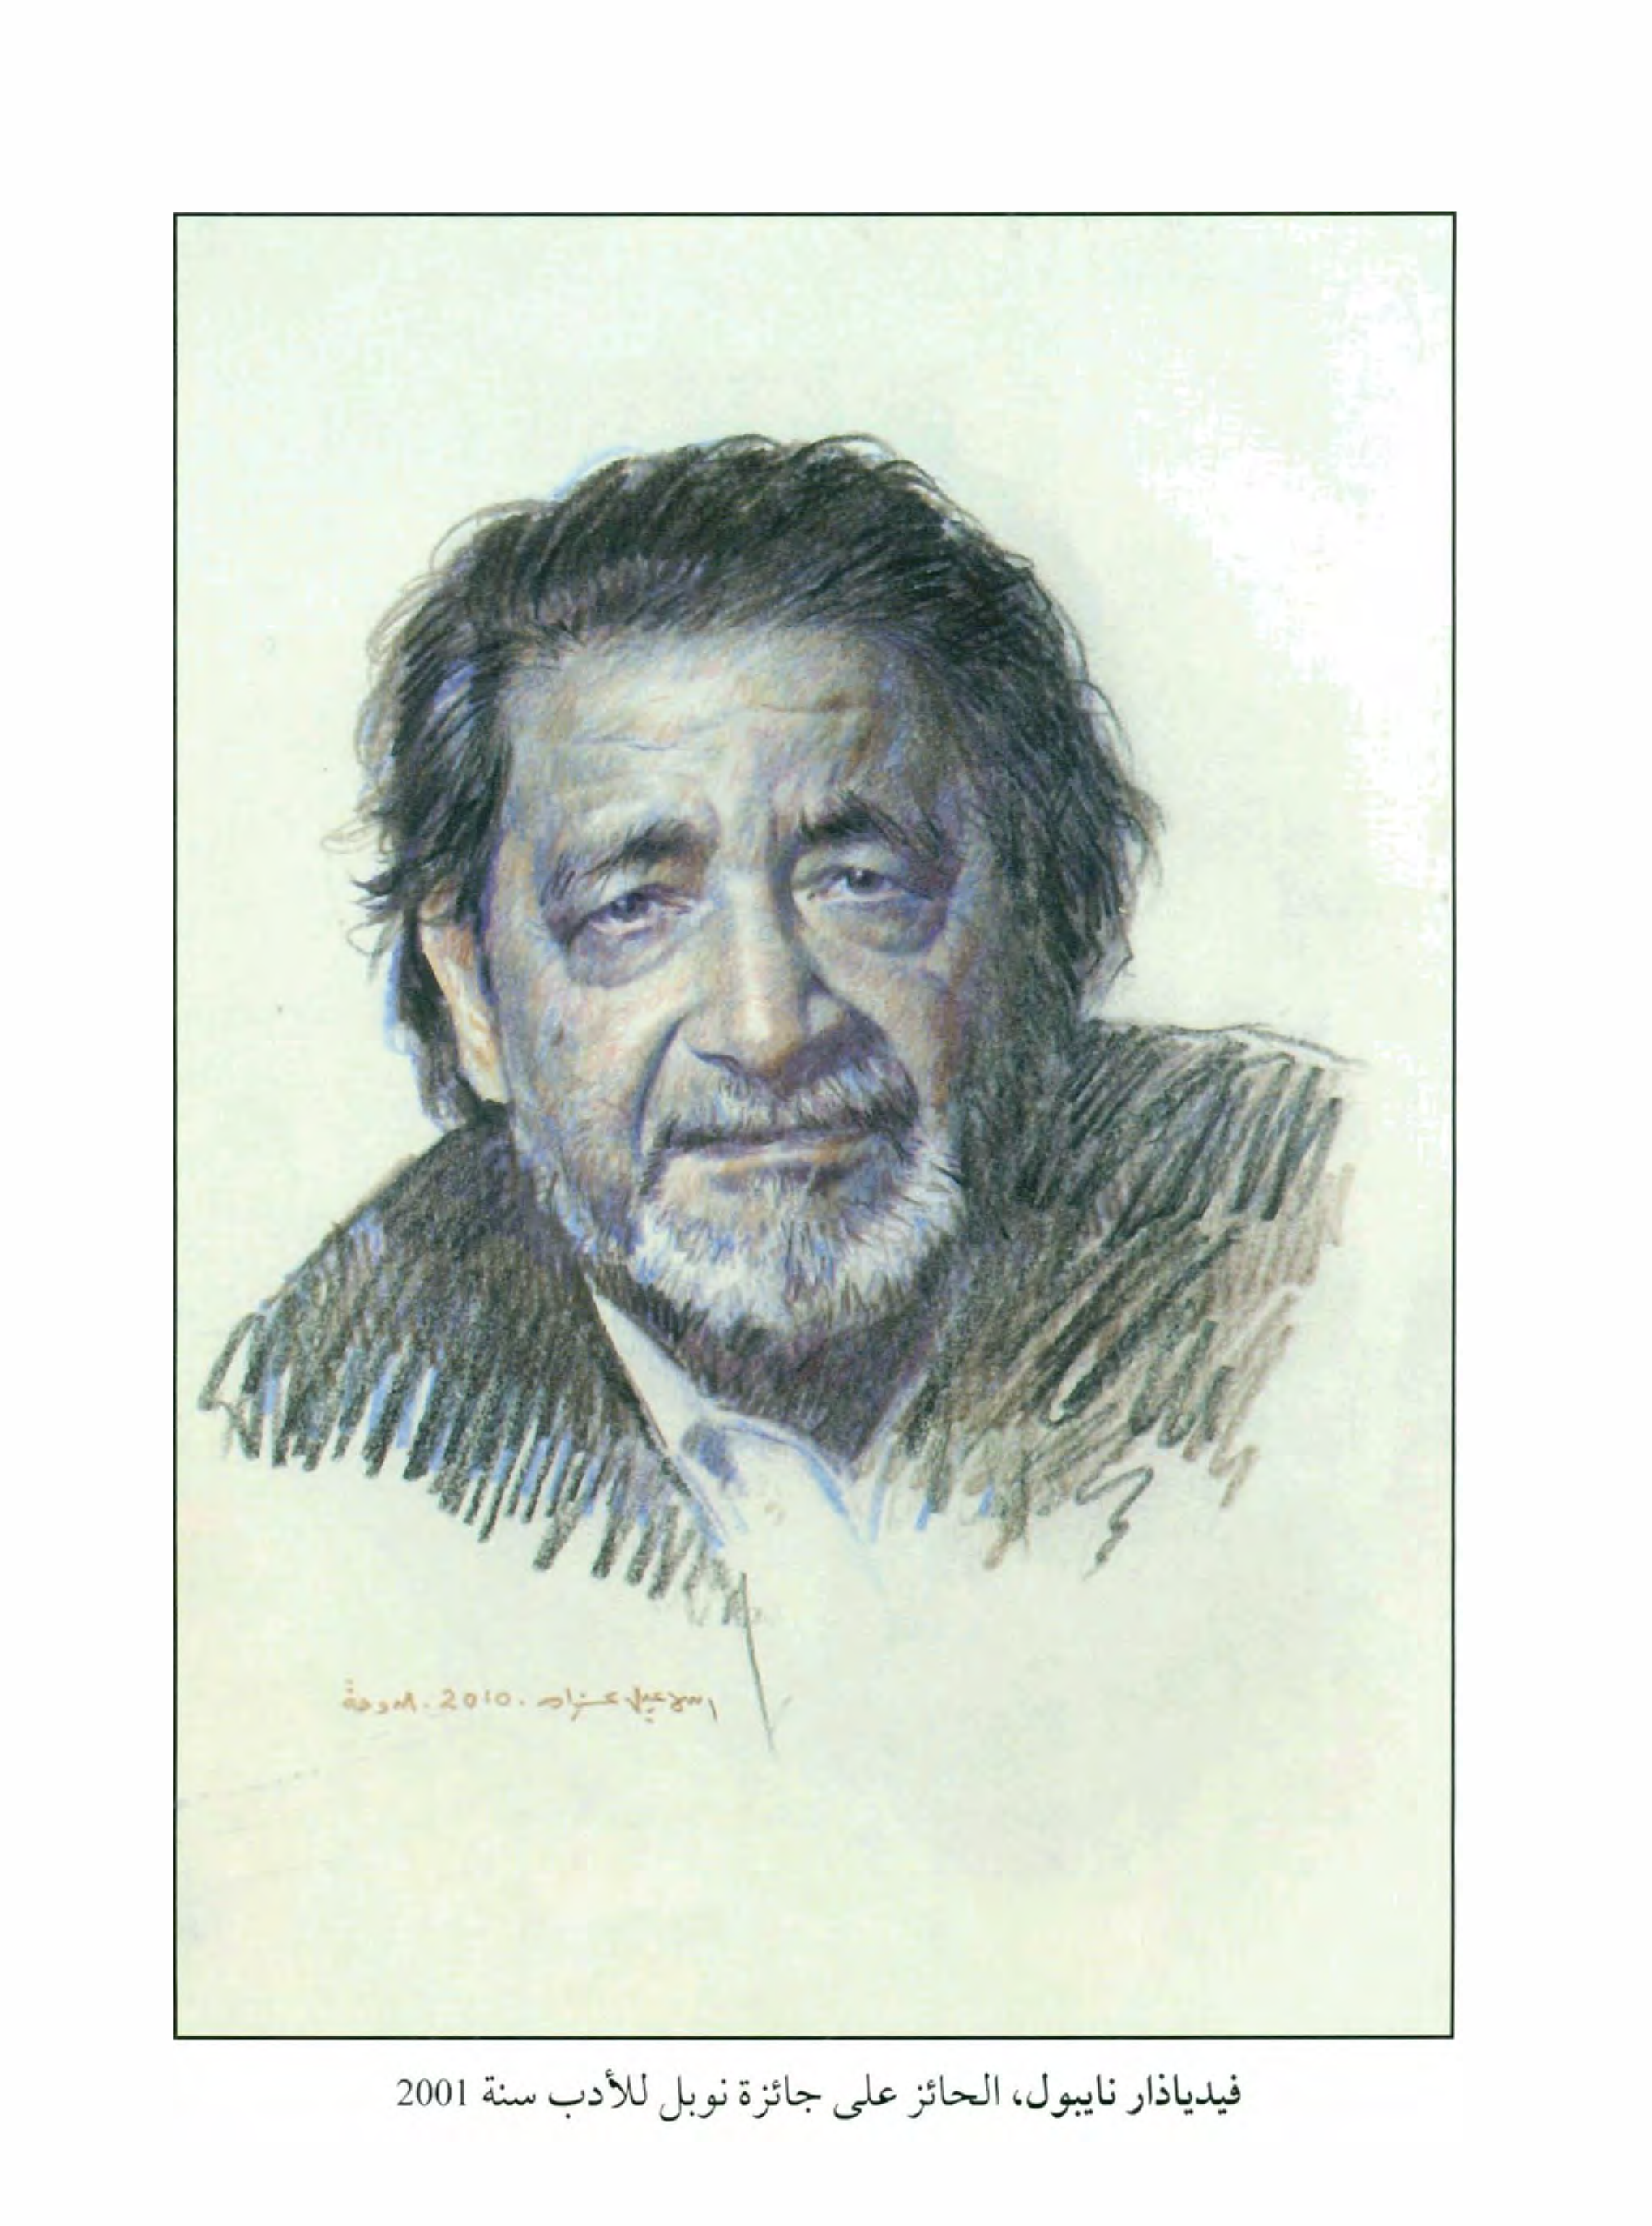 اسماعيل عزام. 2010. الدوحة
فيدياذار نايبول، الحائز على جائزة نوبل للأدب سنة 2001